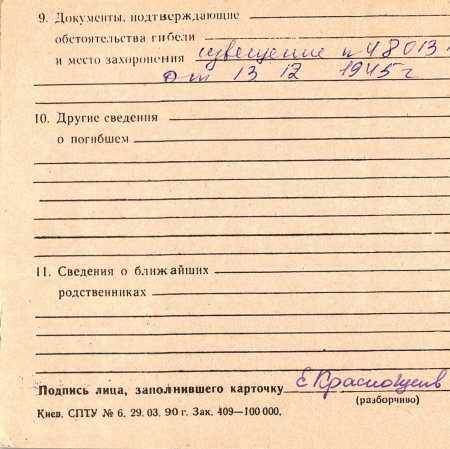 9. Документы, подтверждающие
обстоятельства гибели
и место захоронения извещение п48013
от 13 12 1945г
10. Другие сведения
о погибшем
11. Сведения о ближайших
родственниках
Подпись лица, заполнившего карточку
(разборчиво)
Киев. СПТУ № 6. 29. 03. 90 г. Зак. 409—100 000.